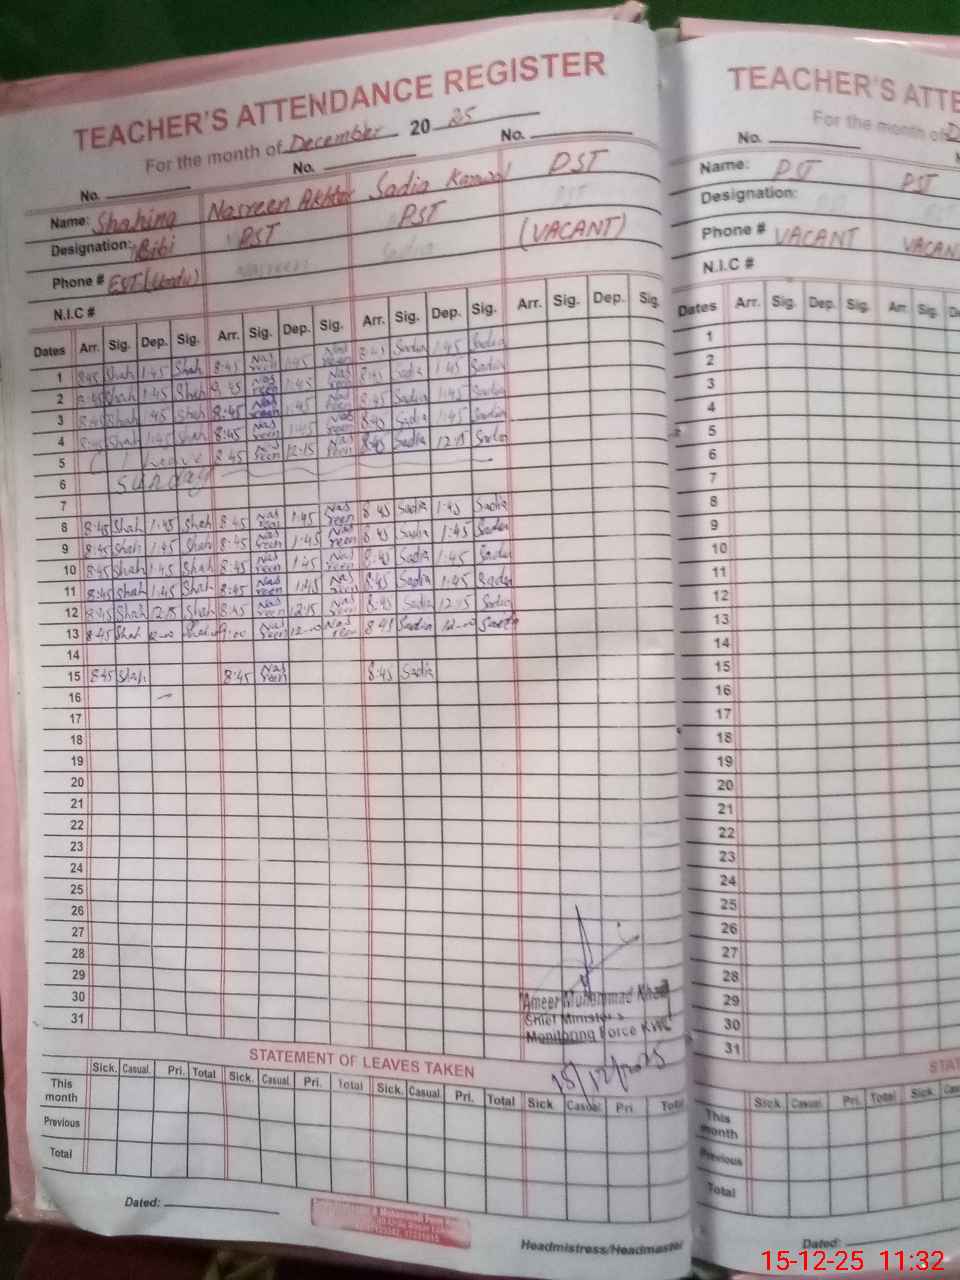 TEACHER'S ATTENDANCE REGISTER
For the month of December 2025
No. No. No.
Name: Shahina Nasreen Akhtar Sadia Kanwal PST
Designation: Bibi PST PST (VACANT)
Phone # EST (Urdu) Nasreen Sadia
N.I.C #
Dates Arr. Sig. Dep. Sig. Arr. Sig. Dep. Sig. Arr. Sig. Dep. Sig. Arr. Sig. Dep. Sig.
1 8:45 Shah 1:45 Shah 8:45 Nasreen 1:45 Nasreen 8:45 Sadia 1:45 Sadia
2 8:45 Shah 1:45 Shah 8:45 Nasreen 1:45 Nasreen 8:45 Sadia 1:45 Sadia
3 8:45 Shah 1:45 Shah 8:45 Nasreen 1:45 Nasreen 8:45 Sadia 1:45 Sadia
4 8:45 Shah 1:45 Shah 8:45 Nasreen 1:45 Nasreen 8:45 Sadia 1:45 Sadia
5 leave 8:45 Nasreen 12-15 Nasreen 8:45 Sadia 12:15 Sadia
6 Sunday
7
8 8:45 Shah 1:45 Shah 8:45 Nasreen 1:45 Nasreen 8:45 Sadia 1:45 Sadia
9 8:45 Shah 1:45 Shah 8:45 Nasreen 1:45 Nasreen 8:45 Sadia 1:45 Sadia
10 8:45 Shah 1:45 Shah 8:45 Nasreen 1:45 Nasreen 8:45 Sadia 1:45 Sadia
11 8:45 Shah 1:45 Shah 8:45 Nasreen 1:45 Nasreen 8:45 Sadia 1:45 Sadia
12 8:45 Shah 12:15 Shah 8:45 Nasreen 12:15 Nasreen 8:45 Sadia 12:15 Sadia
13 8:45 Shah 12-00 Shah 9:00 Nasreen 12-00 Nasreen 8:45 Sadia 12-00 Sadia
14
15 8:45 Shah 8:45 Nasreen 8:45 Sadia
16
17
18
19
20
21
22
23
24
25
26
27
28
29
30
31
Ameer Muhammad Khan
Chief Minister's
Monitoring Force KWL
15/12/2025
STATEMENT OF LEAVES TAKEN
Sick. Casual. Pri. Total Sick. Casual. Pri. Total Sick. Casual. Pri. Total Sick Casual. Pri. Total
This month
Previous
Total
Dated:
Headmistress/Headmaster
TEACHER'S ATTE
For the month of D
No.
Name: PST PST
Designation:
Phone # VACANT VACAN
N.I.C #
Dates Arr. Sig. Dep. Sig. Arr. Sig.
1
2
3
4
5
6
7
8
9
10
11
12
13
14
15
16
17
18
19
20
21
22
23
24
25
26
27
28
29
30
31
STAT
Sick. Casual. Pri. Total Sick. Cas
This month
Previous
Total
Dated:
15-12-25 11:32